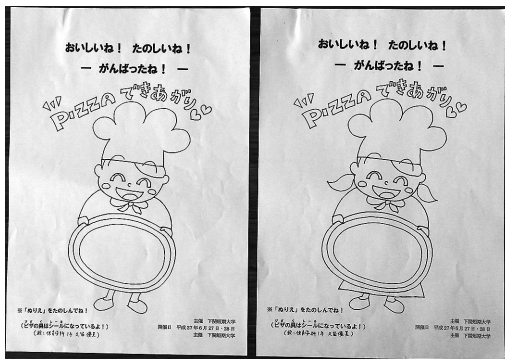 おいしいね！ たのしいね！
― がんばったね！ ―
PIZZAできあがり
※「ぬりえ」をたのしんでね！
（ピザの具はシールになっているよ！）
主催 下関短期大学
開催日 平成27年6月27日・28日
主催 下関短期大学
おいしいね！ たのしいね！
― がんばったね！ ―
PIZZAできあがり
※「ぬりえ」をたのしんでね！
（ピザの具はシールになっているよ！）
主催 下関短期大学
開催日 平成27年6月27日・28日
主催 下関短期大学